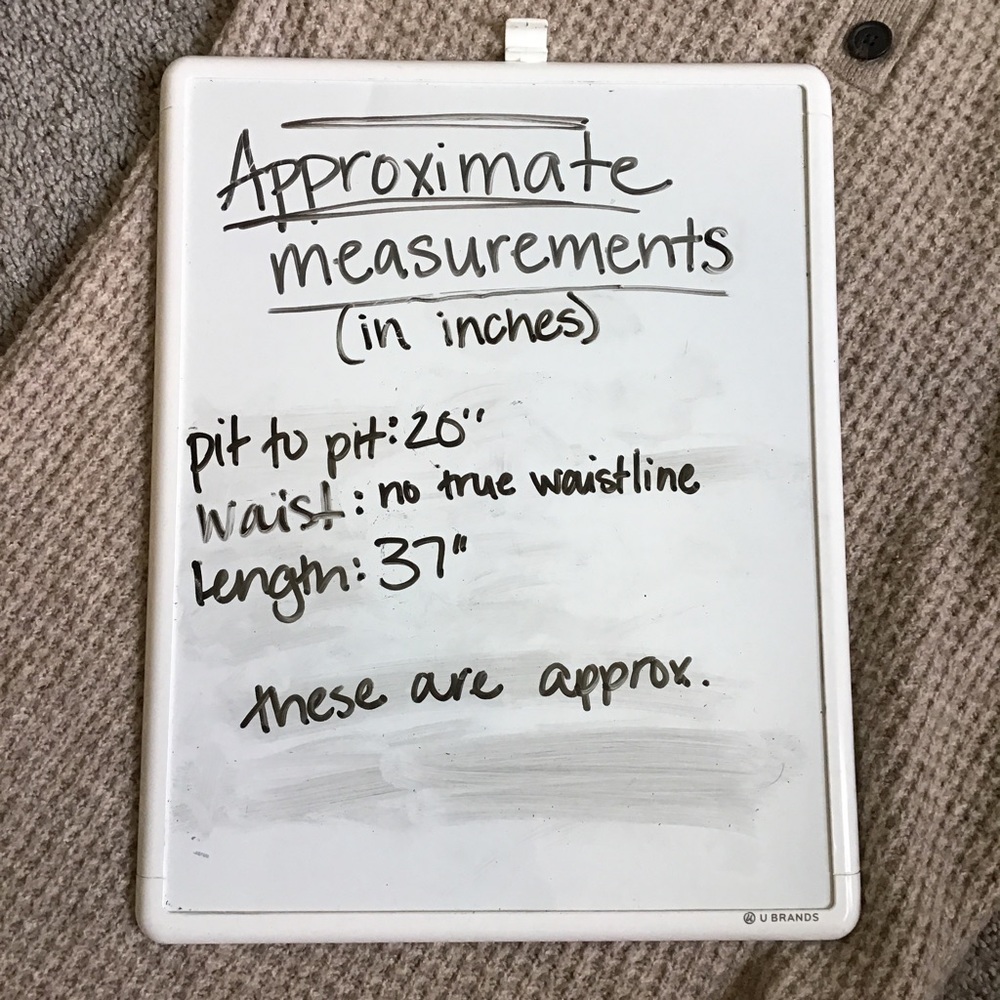 Approximate
measurements
(in inches)
pit to pit: 20"
waist: no true waistline
length: 37"
these are approx.
U BRANDS